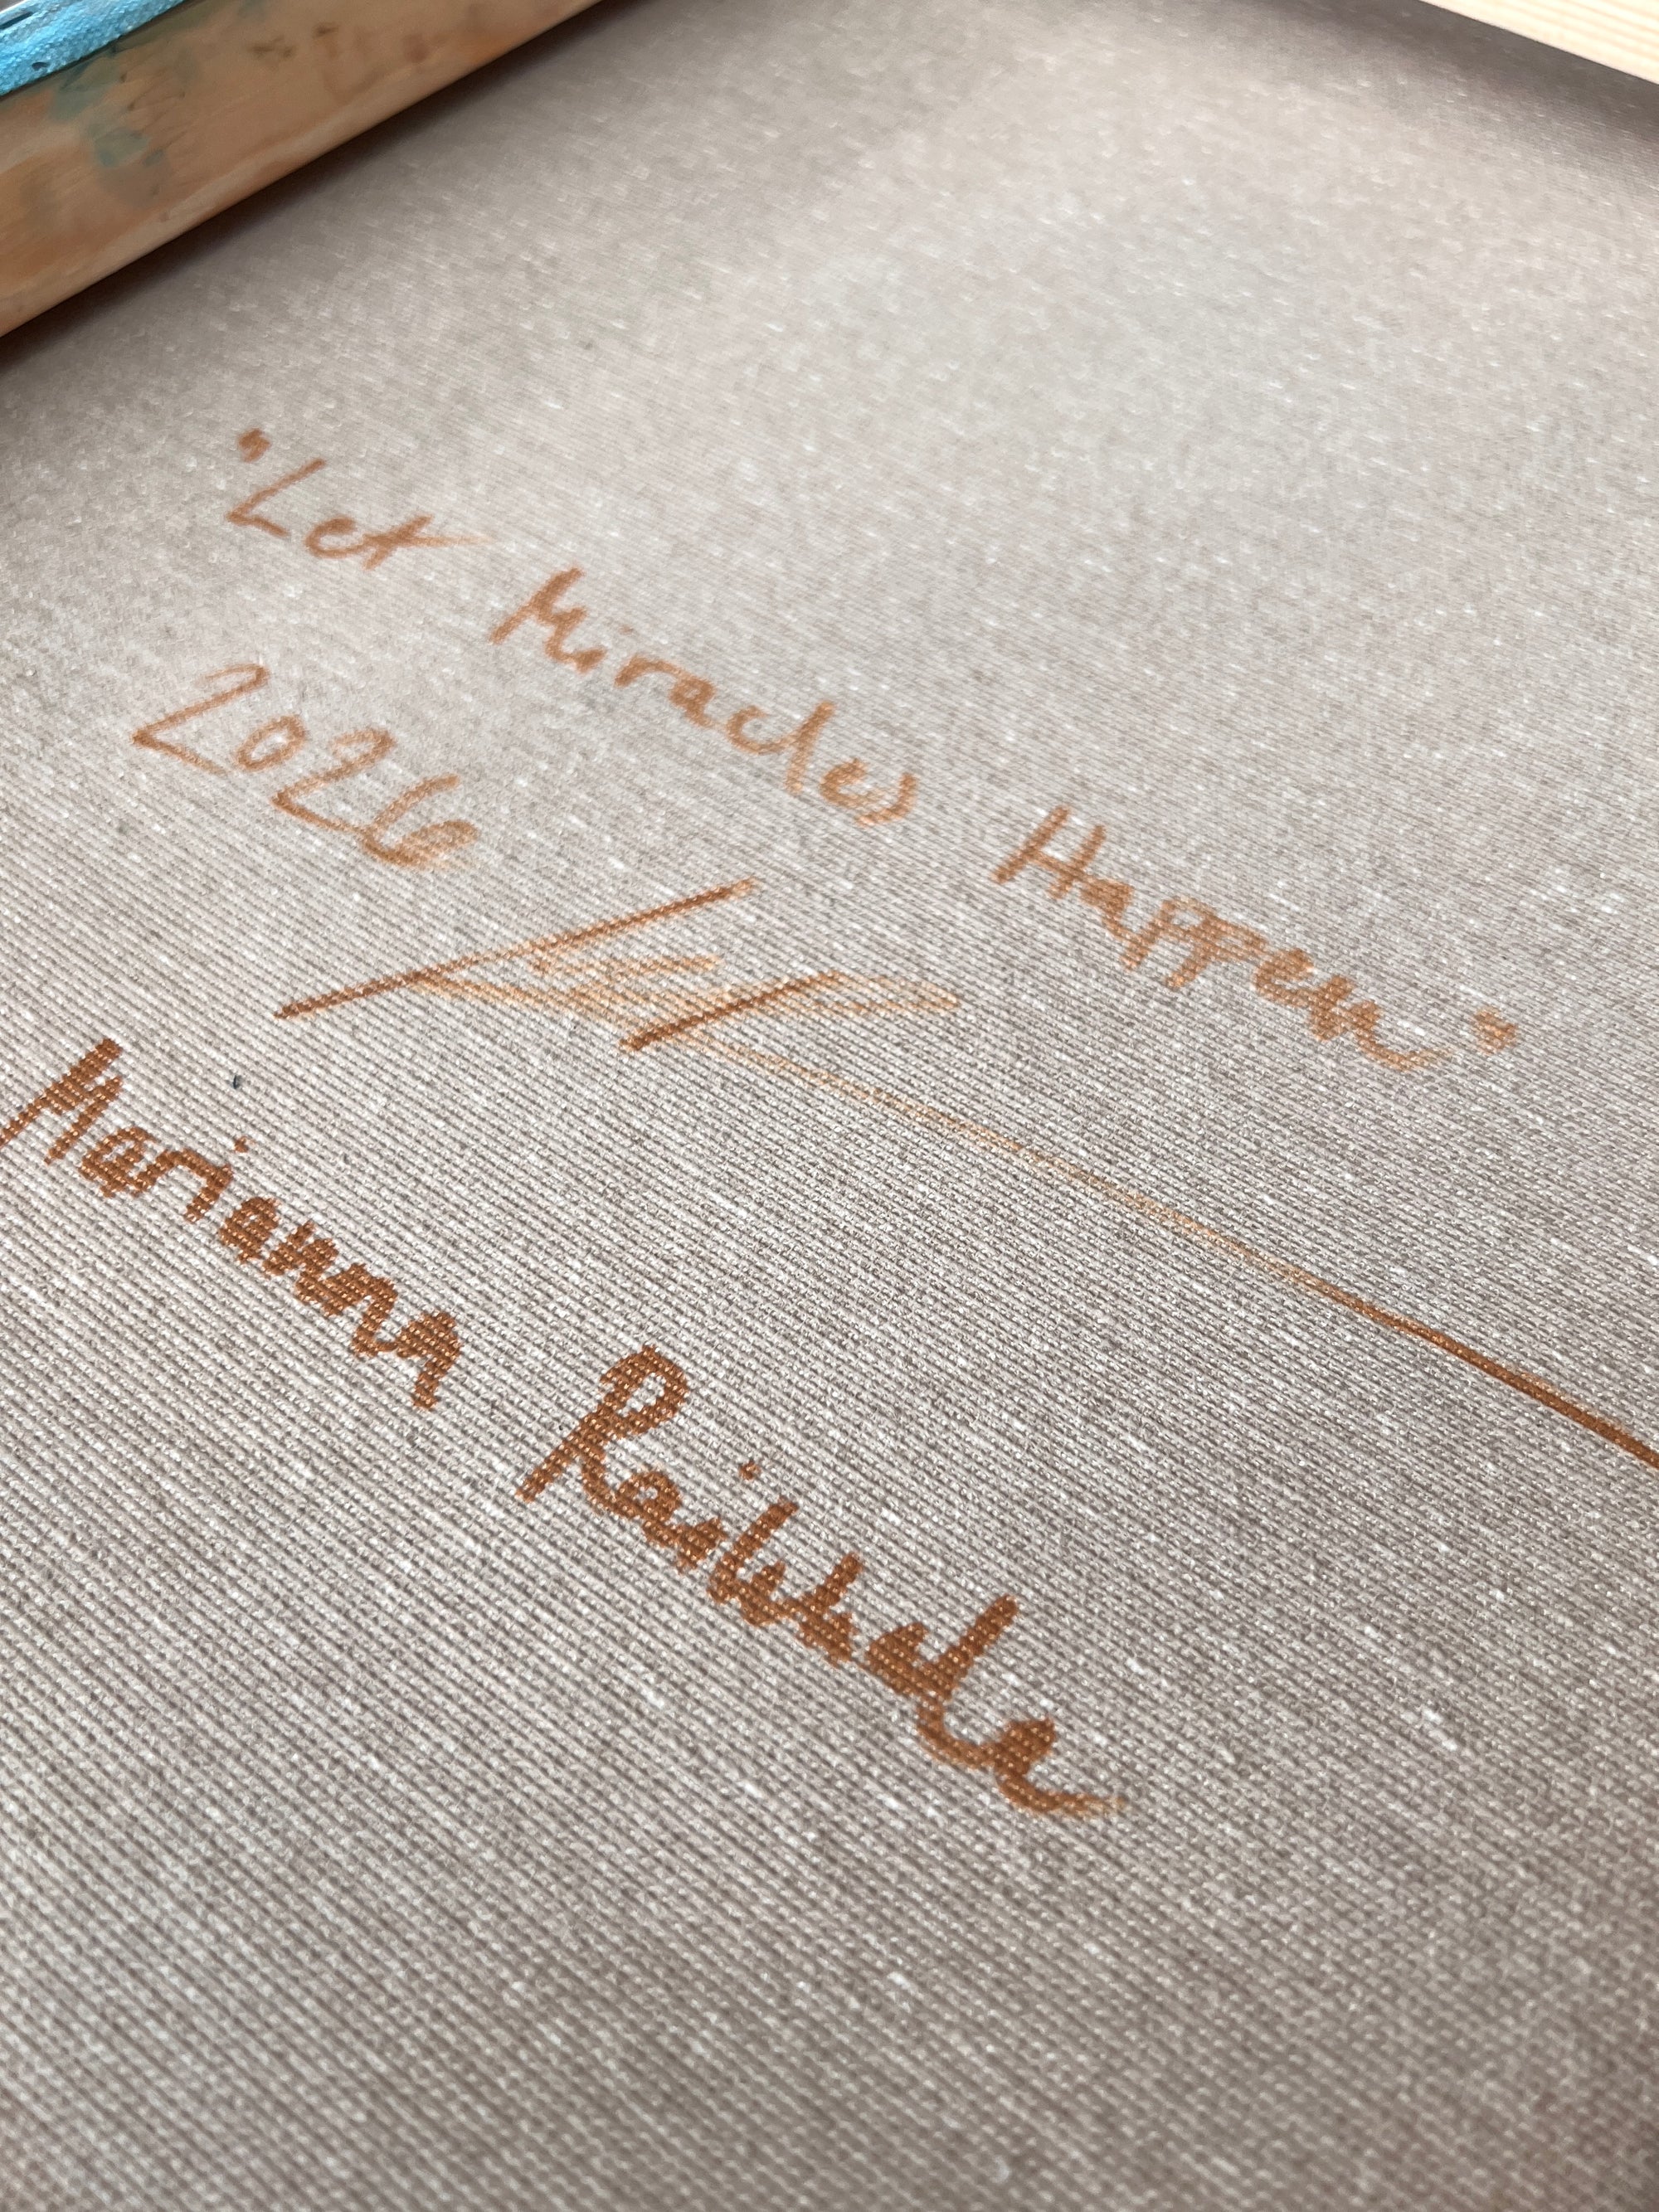 "Let Miracles Happen"
2026
Marianna